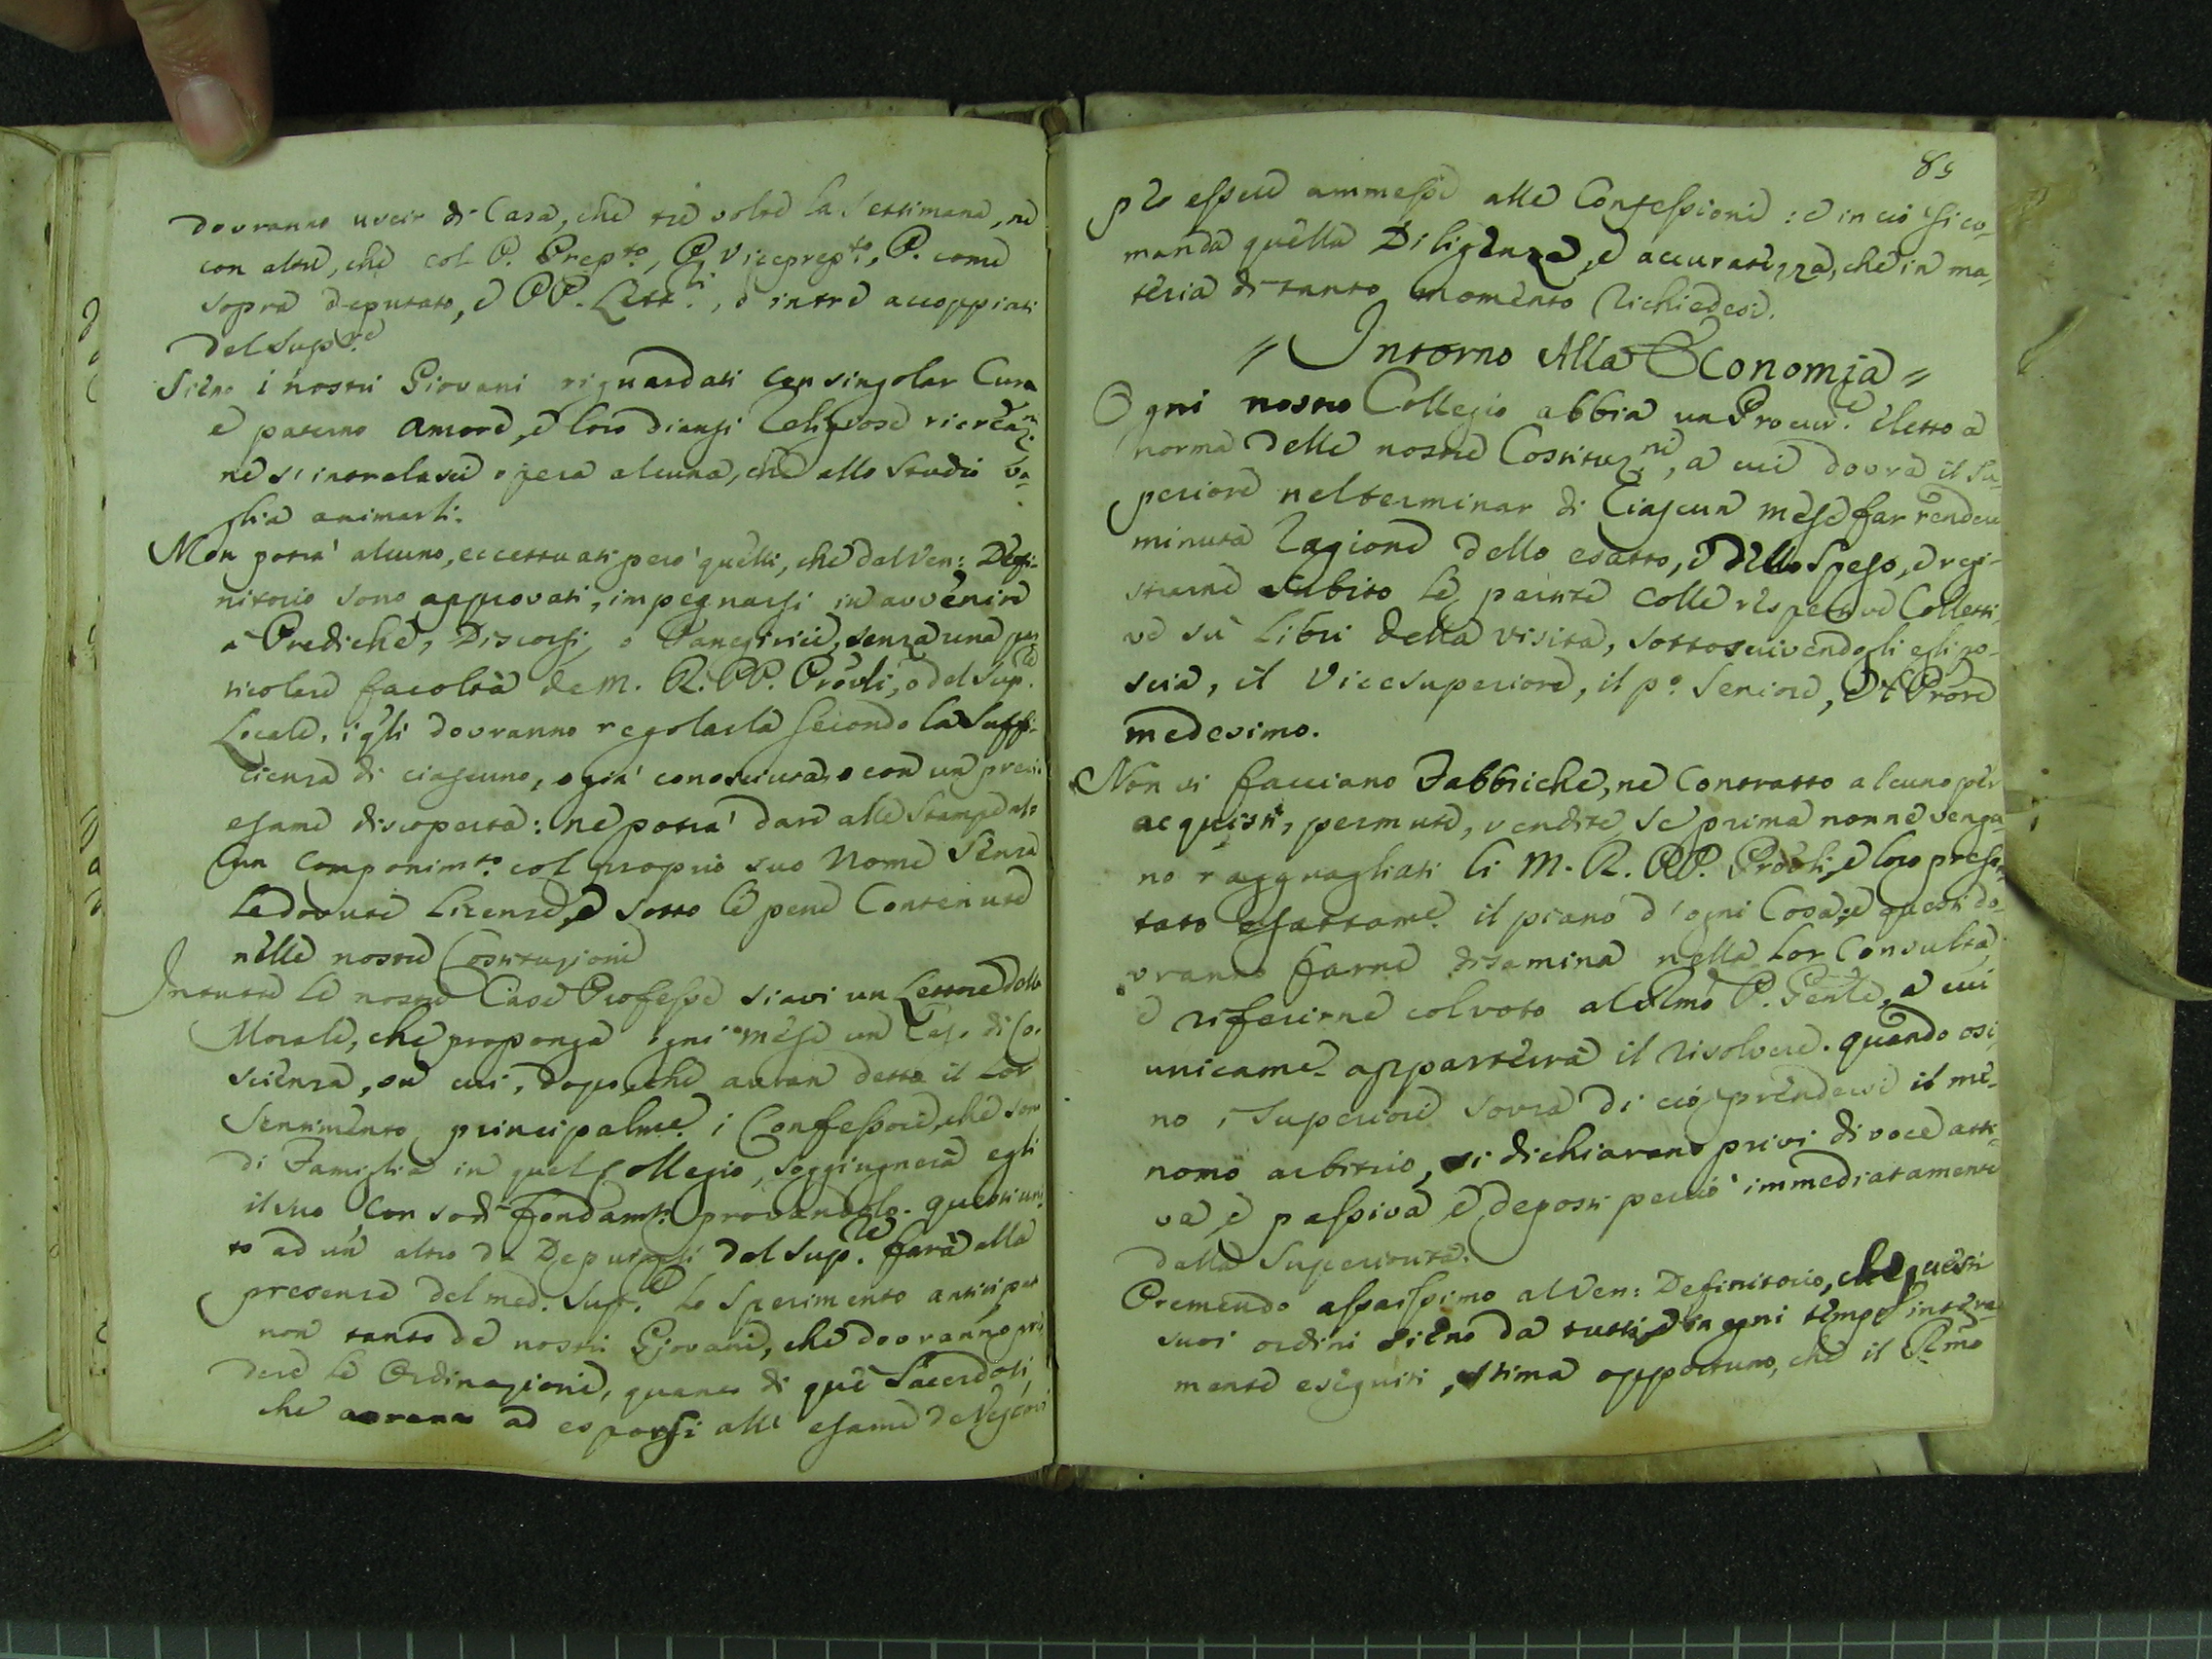 dovranno uscir di Casa, che tre volte la Settimana, ne
con altri, che col P. Prep.to, P. Viceprep.to, P. come
sopra deputato, e PP. Lett.ri, o intre accoppiati
dal Sup.re
Sieno i nostri Giovani riguardati con singolar Cura
e paterno amore, e loro diansi Religiose ricreaz.ni
ne s'intralasci opera alcuna, che allo Studio va-
glia animarli.
Non potrà alcuno, eccettuati però quelli, che dal Ven: Defi-
nitorio sono approvati, impegnarsi in avvenire
a Prediche, Discorsi, o Panegirici, senza una par
ticolare facoltà de M. R. PP. Prov̄li, o del Sup.re
Locale, i q̄li dovranno regolarla secondo la Suffi-
cienza di ciascuno, o già conosciuta, o con un previo
esame discoperta: ne potrà dare alle Stampe al-
cun Componim.to col proprio suo Nome Senza
le dovute Licenze, e sotto le pene Contenute
nelle nostre Costituzioni
In tutte le nostre Case Professe siavi un Lettore della
Morale, che proponga ogni mese un Caso di Co-
scienza, su cui, dopo che avran detto il Lor
Sentimento principalme. i Confessori, che sono
di Famiglia in quel Collegio, soggiugnerà egli
il suo con sodi fondam.ti provandolo. questi uni-
to ad un altro da Deputarsi dal Sup.re farà alla
presenza del med. Sup.re lo Sperimento anticipato
non tanto de nostri Giovani, che dovranno pren
dere le Ordinazioni, quanto di que' Sacerdoti,
che avranno ad esporsi all' esame de Vescovi
89
p̄ esser ammessi alle Confessioni: e in ciò si co-
manda quella Diligenza, e accuratezza, che in ma-
teria di tanto momento richiedesi.
// Intorno Alla Economia //
Ogni nostro Collegio abbia un Procur.e eletto a
norma delle nostre Costituz.ni, a cui dovrà il Su-
periore nel terminar di Ciascun mese far rendere
minuta Ragione dello esatto, e dello Speso, e regi-
strarne subito le partite colle rispettive Colletti-
ve su' Libri della visita, sottoscrivendogli egli po-
scia, il Vicesuperiore, il p.o Seniore, e 'l Prōre
medesimo.
Non si facciano Fabbriche, ne Contratto alcuno per
acquisti, permute, vendite, se prima non ne venga-
no ragguagliati li M. R. PP. Prov̄li, e loro presen-
tato esattame. il piano d'ogni Cosa; e questi do-
vranno farne disamina nella lor Consulta,
e riferirne col voto al Rmo P. Gen̄le, a cui
unicame. apparterrà il risolvere. quando osi-
no i Superiori sovra di ciò prendersi il me-
nomo arbitrio, si dichiarano privi di voce atti-
va, e passiva, e deposti perciò immediatamente
dalla Superiorità.
Premendo assaissimo al Ven: Definitorio, che questi
suoi ordini sieno da tutti, e in ogni tempo intera-
mente eseguiti, stima opportuno, che il Rmo